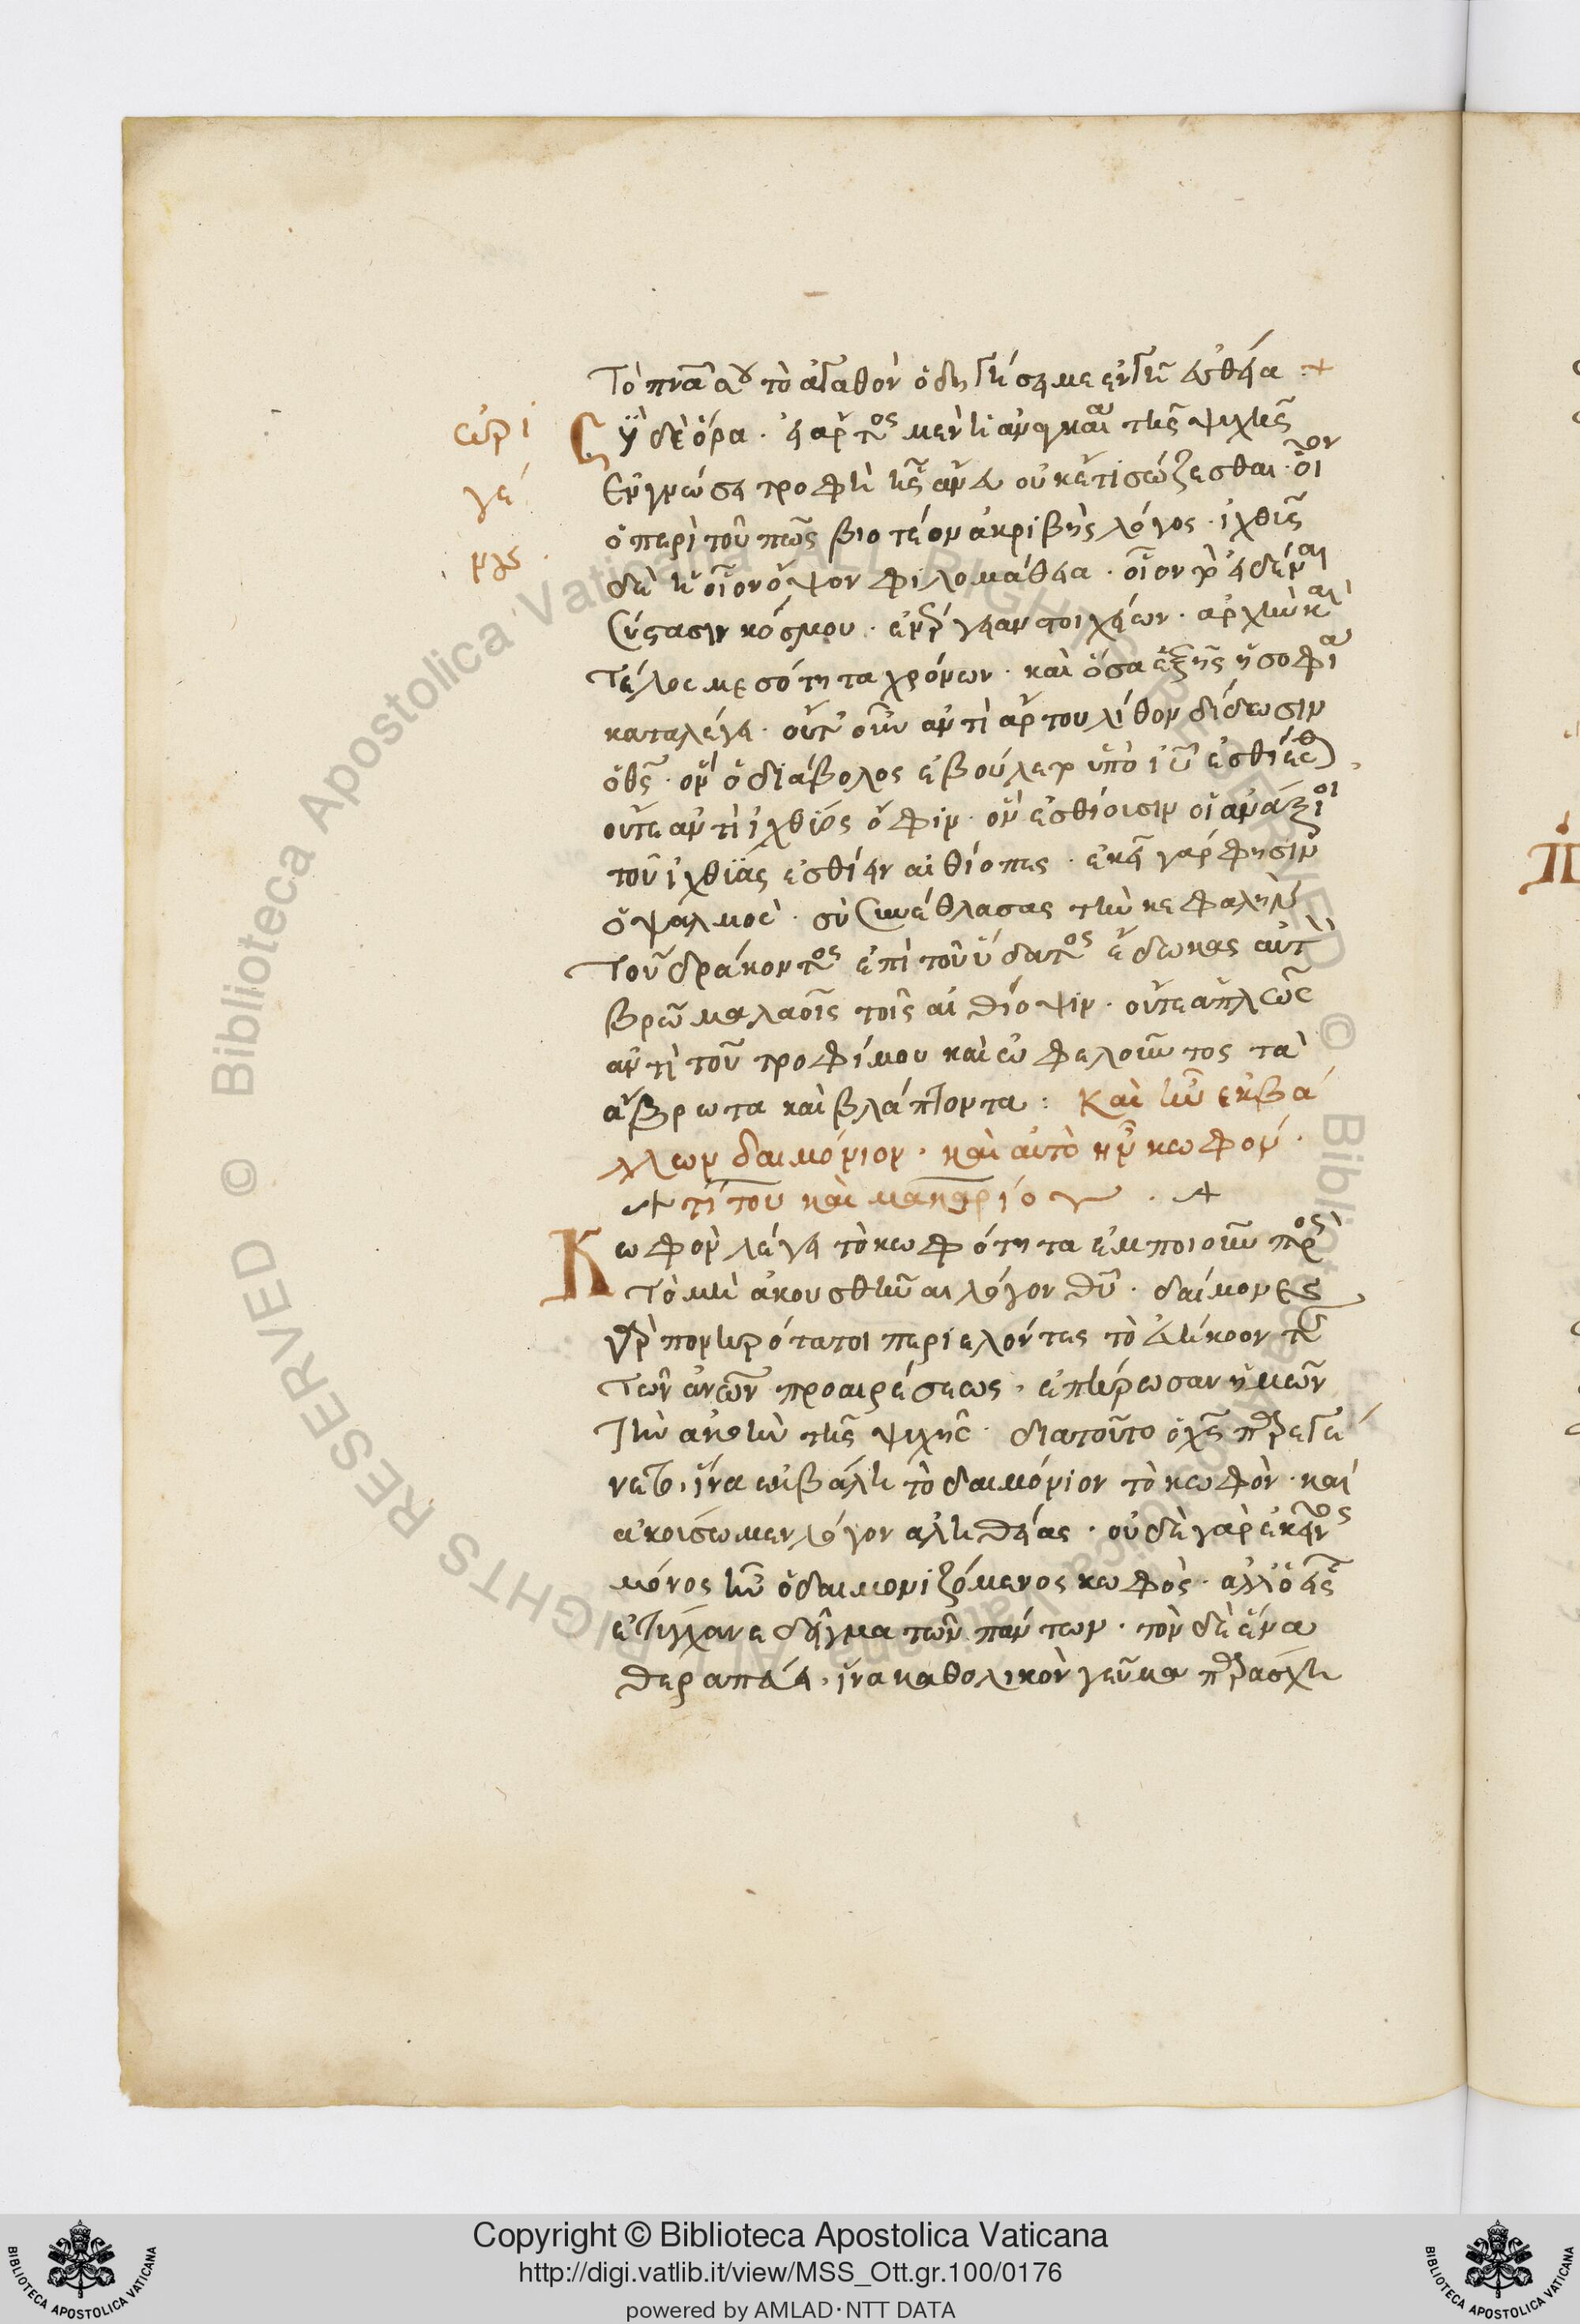 ὠρι
γέ
νης
Τὸ πνᾶ σου τὸ ἀγαθὸν ὁδηγήσει με ἐν γῆ εὐθεία
Σὺ δὲ ὅρα. εἰ ἄρτος μὲν ἡ ἀναγκαία τῆς ψυχῆς
ἐν γνώσει τροφὴ ἧς ἄνευ οὐκ ἔτι σώζεσθαι. οἷον
ὁ περὶ τοῦ πῶς βιοτέον ἀκριβὴς λόγος. ἰχθῦς
δὲ ἡ οἷον ὄψον φιλομάθεια. οἷον τὸ εἰδέναι
σύστασιν κόσμου. ἐνέργειαν στοιχείων. ἀρχὴν καὶ
τέλος μεσότητα χρόνων. καὶ ὅσα ἑξῆς ἡ σοφία
καταλέγει. οὔτ' οὖν ἀντὶ ἄρτου λίθον δίδωσιν
ὁ θς. ὃν ὁ διάβολος ἐβούλετο ὑπὸ ιῦ ἐσθίεσθαι
οὔτε ἀντὶ ἰχθύος ὄφιν. ὃν ἐσθίουσιν οἱ ἀνάξιοι
τοῦ ἰχθύας ἐσθίειν αἰθίοπες. ἐκεῖ γάρ φησιν
ὁ ψαλμὸς. σὺ συνέθλασας τὴν κεφαλὴν
τοῦ δράκοντος ἐπὶ τοῦ ὕδατος ἔδωκας αὐτὸν
βρῶμα λαοῖς τοῖς αἰθίοψιν. οὔτε ἁπλῶς
ἀντὶ τοῦ τροφίμου καὶ ὠφελοῦντος τὰ
ἄβρωτα καὶ βλάπτοντα: Καὶ ἦν ἐκβά
λλων δαιμόνιον. καὶ αὐτὸ ἦν κωφόν.
τίτου καὶ μακαρίου
Κωφὸν λέγει τὸ κωφότητα ἐμποιοῦν πρὸς
τὸ μὴ ἀκουσθῆναι λόγον θῦ. δαίμονες
γὰρ πονηρότατοι περιελόντες τὸ εὐήκοον τῆς
τῶν ἀνῶν προαιρέσεως. ἐπήρωσαν ἡμῶν
τὴν ἀκοὴν τῆς ψυχῆς. διατοῦτο ὁ χς παρεγέ
νετο. ἵνα ἐκβάλη τὸ δαιμόνιον τὸ κωφὸν. καὶ
ἀκούσωμεν λόγον ἀληθείας. οὐδὲ γὰρ ἐκεῖνος
μόνος ἦν ὁ δαιμονιζόμενος κωφὸς. ἀλλ' ὁ εἷς
ἐτύγχανε δεῖγμα τῶν πάντων. τὸν δὲ ἕνα
θεραπεύει. ἵνα καθολικὸν γεῦμα παράσχη
Copyright © Biblioteca Apostolica Vaticana
http://digi.vatlib.it/view/MSS_Ott.gr.100/0176
powered by AMLAD·NTT DATA